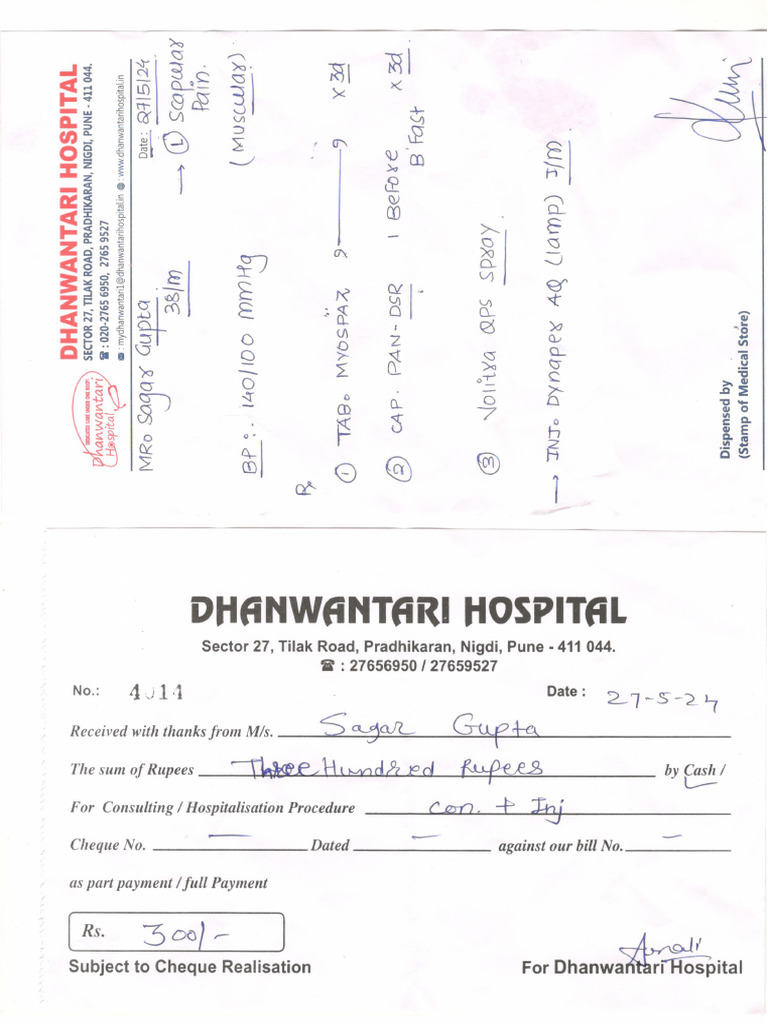 DHANWANTARI HOSPITAL
SECTOR 27, TILAK ROAD, PRADHIKARAN, NIGDI, PUNE - 411 044.
☎ : 020-2765 6950, 2765 9527
: mydhanwantari1@dhanwantarihospital.in : www.dhanwantarihospital.in
Dhanwantari
Hospital
Date : 27/5/24
MRo Sagar Gupta
38/M
→ (L) Scapular
Pain.
(Muscular)
BP :- 140/100 mmHg
Rx
1 TABo MYOSPAZ 9———9 x 3d
2 CAP. PAN-DSR 1 Before B'Fast x 3d
3 Volitra QPS spray.
→ INJo Dynapar AQ (1amp) I/M
Dispensed by
(Stamp of Medical Store)
DHANWANTARI HOSPITAL
Sector 27, Tilak Road, Pradhikaran, Nigdi, Pune - 411 044.
☎ : 27656950 / 27659527
No.: 4014 Date : 27-5-24
Received with thanks from M/s. Sagar Gupta
The sum of Rupees Three Hundred Rupees by Cash /
For Consulting / Hospitalisation Procedure Con. + Inj
Cheque No. — Dated — against our bill No. —
as part payment / full Payment
Rs. 300/-
Subject to Cheque Realisation For Dhanwantari Hospital